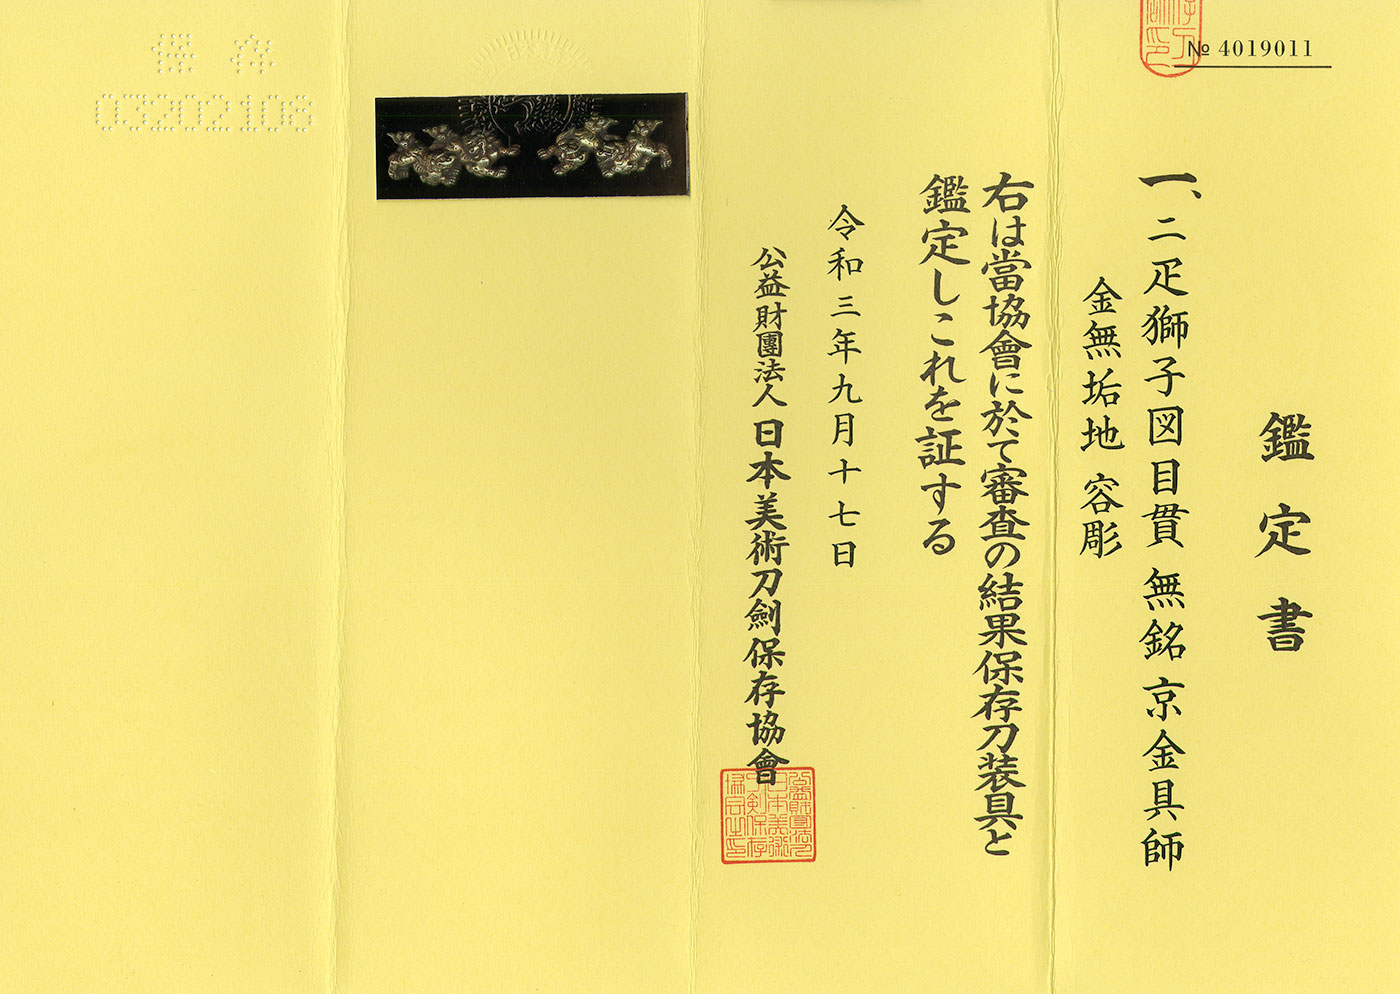 № 4019011
鑑定書
一、二疋獅子図目貫 無銘 京金具師
金無垢地 容彫
右は當協會に於て審査の結果保存刀装具と
鑑定しこれを証する
令和三年九月十七日
公益財團法人 日本美術刀劍保存協會
保存
03202108